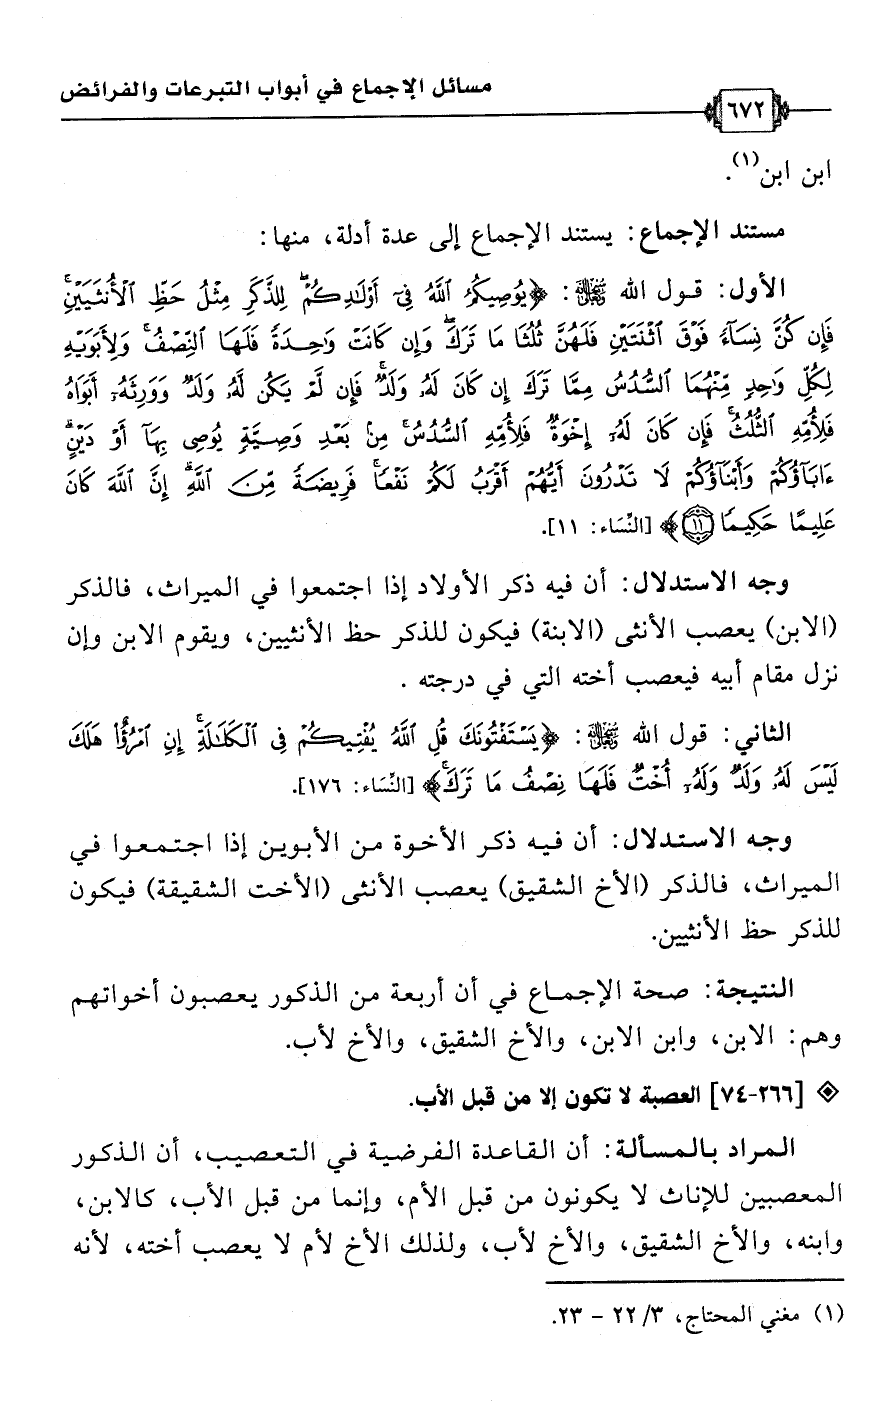 مسائل الإجماع في أبواب التبرعات والفرائض
٦٧٢
ابن ابن(١).
مستند الإجماع: يستند الإجماع إلى عدة أدلة، منها:
الأول: قول الله ﷻ: ﴿يُوصِيكُمُ ٱللَّهُ فِىٓ أَوْلَـٰدِكُمْ ۖ لِلذَّكَرِ مِثْلُ حَظِّ ٱلْأُنثَيَيْنِ ۚ
فَإِن كُنَّ نِسَآءً فَوْقَ ٱثْنَتَيْنِ فَلَهُنَّ ثُلُثَا مَا تَرَكَ ۖ وَإِن كَانَتْ وَٰحِدَةً فَلَهَا ٱلنِّصْفُ ۚ وَلِأَبَوَيْهِ
لِكُلِّ وَٰحِدٍ مِّنْهُمَا ٱلسُّدُسُ مِمَّا تَرَكَ إِن كَانَ لَهُۥ وَلَدٌ ۚ فَإِن لَّمْ يَكُن لَّهُۥ وَلَدٌ وَوَرِثَهُۥٓ أَبَوَاهُ
فَلِأُمِّهِ ٱلثُّلُثُ ۚ فَإِن كَانَ لَهُۥٓ إِخْوَةٌ فَلِأُمِّهِ ٱلسُّدُسُ ۚ مِنۢ بَعْدِ وَصِيَّةٍ يُوصِى بِهَآ أَوْ دَيْنٍ ۗ
ءَابَآؤُكُمْ وَأَبْنَآؤُكُمْ لَا تَدْرُونَ أَيُّهُمْ أَقْرَبُ لَكُمْ نَفْعًا ۚ فَرِيضَةً مِّنَ ٱللَّهِ ۗ إِنَّ ٱللَّهَ كَانَ
عَلِيمًا حَكِيمًا ١١﴾ [النِّسَاء: ١١].
وجه الاستدلال: أن فيه ذكر الأولاد إذا اجتمعوا في الميراث، فالذكر
(الابن) يعصب الأنثى (الابنة) فيكون للذكر حظ الأنثيين، ويقوم الابن وإن
نزل مقام أبيه فيعصب أخته التي في درجته .
الثاني: قول الله ﷻ: ﴿يَسْتَفْتُونَكَ قُلِ ٱللَّهُ يُفْتِيكُمْ فِى ٱلْكَلَـٰلَةِ ۚ إِنِ ٱمْرُؤٌا۟ هَلَكَ
لَيْسَ لَهُۥ وَلَدٌ وَلَهُۥٓ أُخْتٌ فَلَهَا نِصْفُ مَا تَرَكَ ۚ﴾ [النِّسَاء: ١٧٦].
وجه الاستدلال: أن فيه ذكر الأخوة من الأبوين إذا اجتمعوا في
الميراث، فالذكر (الأخ الشقيق) يعصب الأنثى (الأخت الشقيقة) فيكون
للذكر حظ الأنثيين.
النتيجة: صحة الإجماع في أن أربعة من الذكور يعصبون أخواتهم
وهم: الابن، وابن الابن، والأخ الشقيق، والأخ لأب.
[٢٦٦-٧٤] العصبة لا تكون إلا من قبل الأب.
المراد بالمسألة: أن القاعدة الفرضية في التعصيب، أن الذكور
المعصبين للإناث لا يكونون من قبل الأم، وإنما من قبل الأب، كالابن،
وابنه، والأخ الشقيق، والأخ لأب، ولذلك الأخ لأم لا يعصب أخته، لأنه
(١) مغني المحتاج، ٣/ ٢٢ - ٢٣.